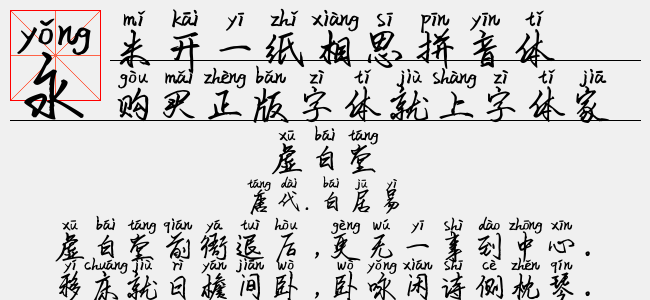 yǒng
永
mǐ kāi yī zhǐ xiàng sī pīn yīn tǐ
米开一纸相思拼音体
gòu mǎi zhèng bǎn zì tǐ jiù shàng zì tǐ jiā
购买正版字体就上字体家
xū bái táng
虚白堂
táng dài bái jū yì
唐代.白居易
xū bái táng qián yá tuì hòu gèng wú yī shì dào zhōng xīn
虚白堂前衙退后,更无一事到中心.
yí chuáng jiù rì yán jiān wò wò yǒng xián shī cè zhěn qín
移床就日檐间卧,卧咏闲诗侧枕琴.